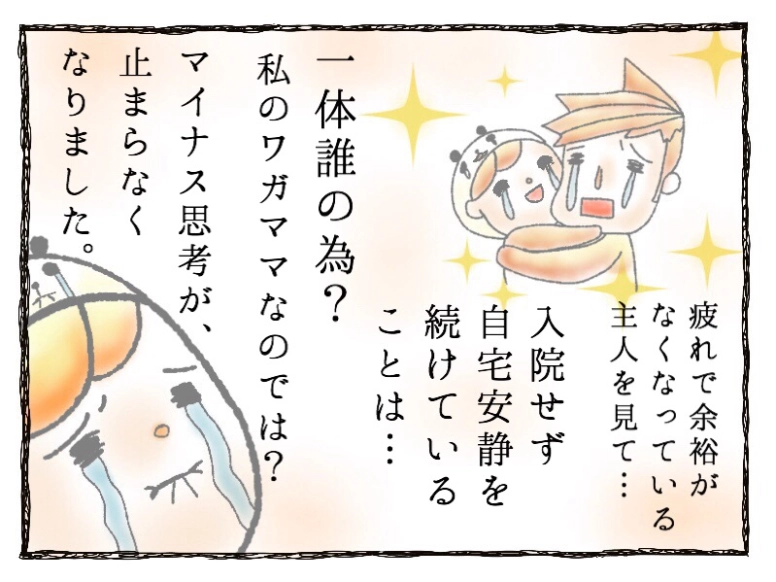 疲れで余裕が
なくなっている
主人を見て…
入院せず
自宅安静を
続けている
ことは…
一体誰の為？
私のワガママなのでは？
マイナス思考が、
止まらなく
なりました。